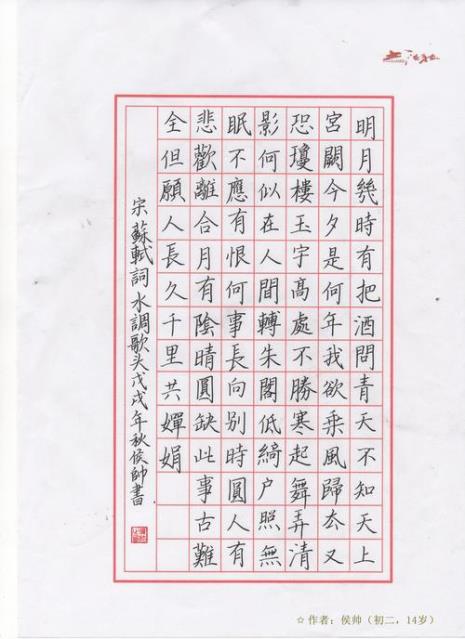 明月幾時有把酒問青天不知天上
宮闕今夕是何年我欲乘風歸厺又
恐瓊樓玉宇髙處不勝寒起舞弄清
影何似在人間轉朱閣低綺户照無
眠不應有恨何事長向别時圓人有
悲歡離合月有陰晴圓缺此事古難
全但願人長久千里共嬋娟
宋蘇軾詞水調歌头戊戌年秋侯帥書
☆作者：侯帅（初二，14岁）